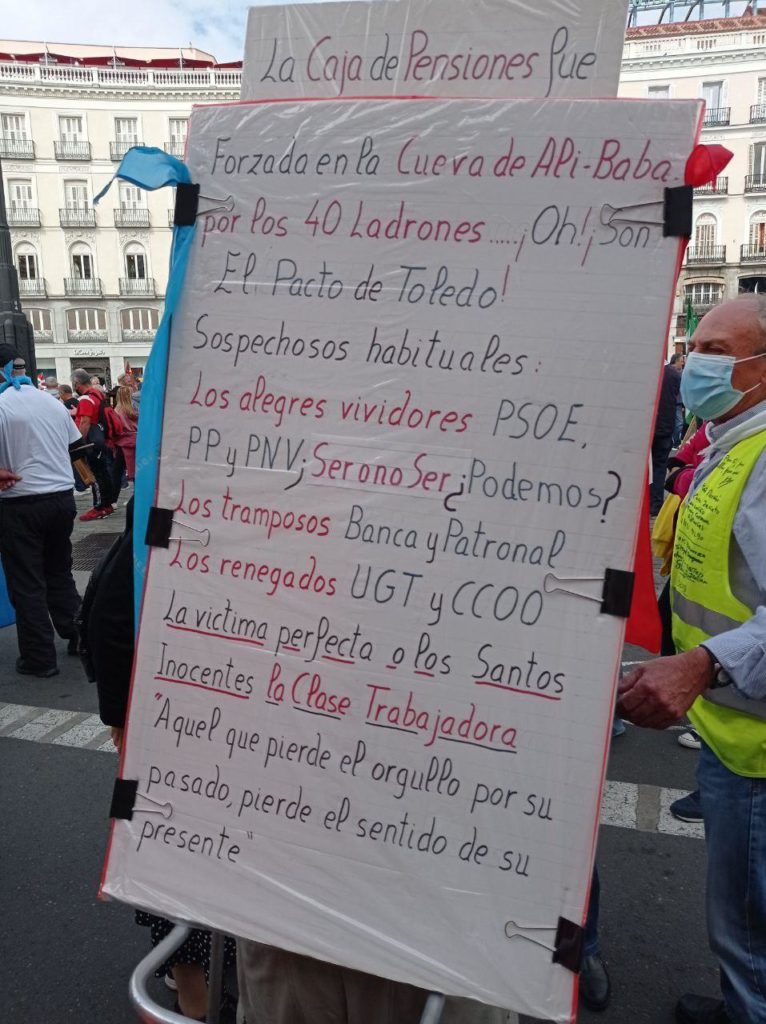 La Caja de Pensiones fue
Forzada en la Cueva de Ali-Baba
por los 40 Ladrones.....¡Oh!¡Son
El Pacto de Toledo!
Sospechosos habituales:
Los alegres vividores PSOE,
PP y PNV; Ser o no Ser ¿Podemos?
Los tramposos Banca y Patronal
Los renegados UGT y CCOO
La victima perfecta o los Santos
Inocentes la Clase Trabajadora
"Aquel que pierde el orgullo por su
pasado, pierde el sentido de su
presente"